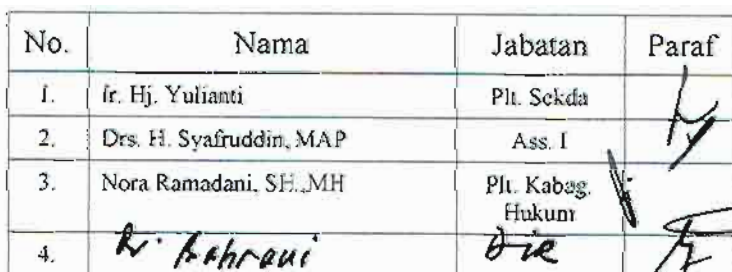 No. Nama Jabatan Paraf
1. Ir. Hj. Yulianti Plt. Sekda
2. Drs. H. Syafruddin, MAP Ass. I
3. Nora Ramadani, SH.,MH Plt. Kabag.
Hukum
4. Bahrani